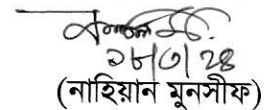 ২৮/৩/২৪
(নাহিয়ান মুনসীফ)